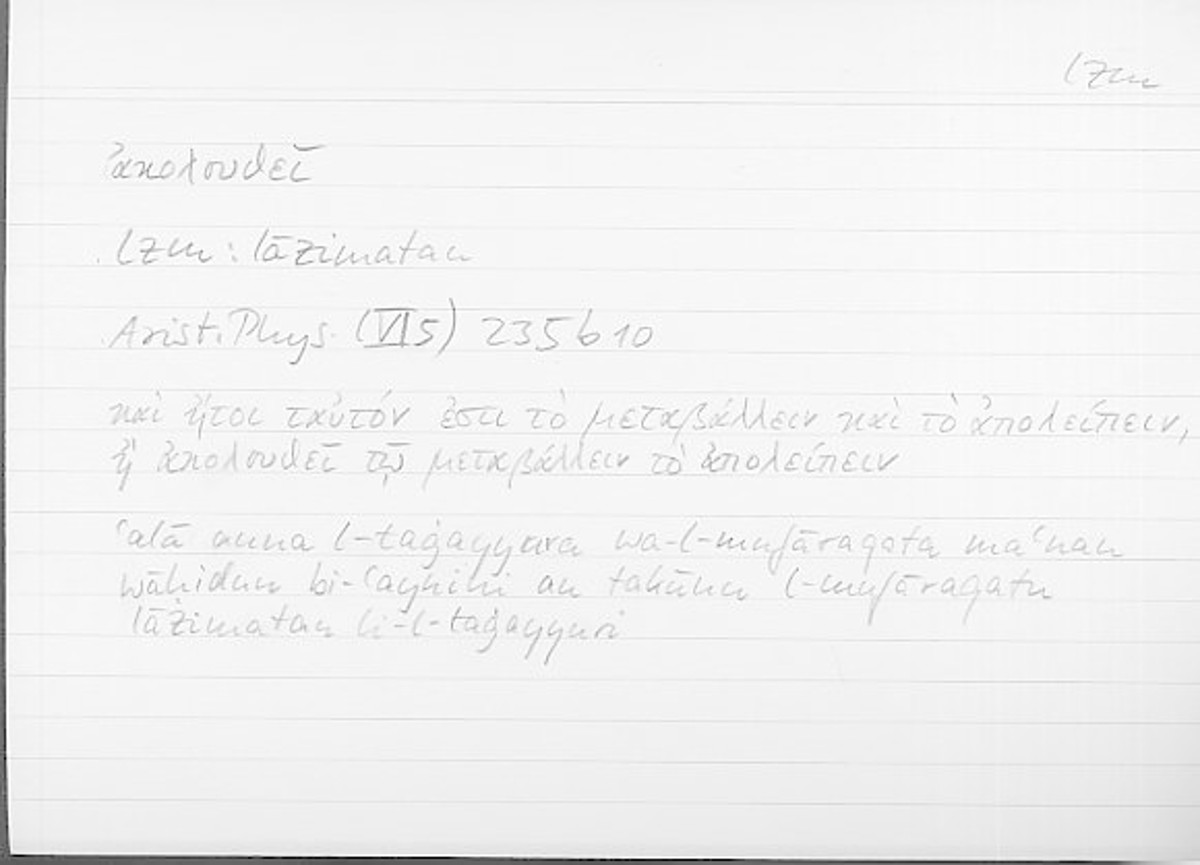 lzm
ἀκολουθεῖ
lzm : lāzimatan
Arist. Phys. (VI 5) 235 b 10
καὶ ἤτοι ταὐτόν ἐστι τὸ μεταβάλλειν καὶ τὸ ἀπολείπειν,
ἢ ἀκολουθεῖ τῷ μεταβάλλειν τὸ ἀπολείπειν
ʿalā anna l-taġayyura wa-l-mufāraqata maʿnan
wāḥidun bi-ʿaynihi au takūnu l-mufāraqatu
lāzimatan li-l-taġayyuri